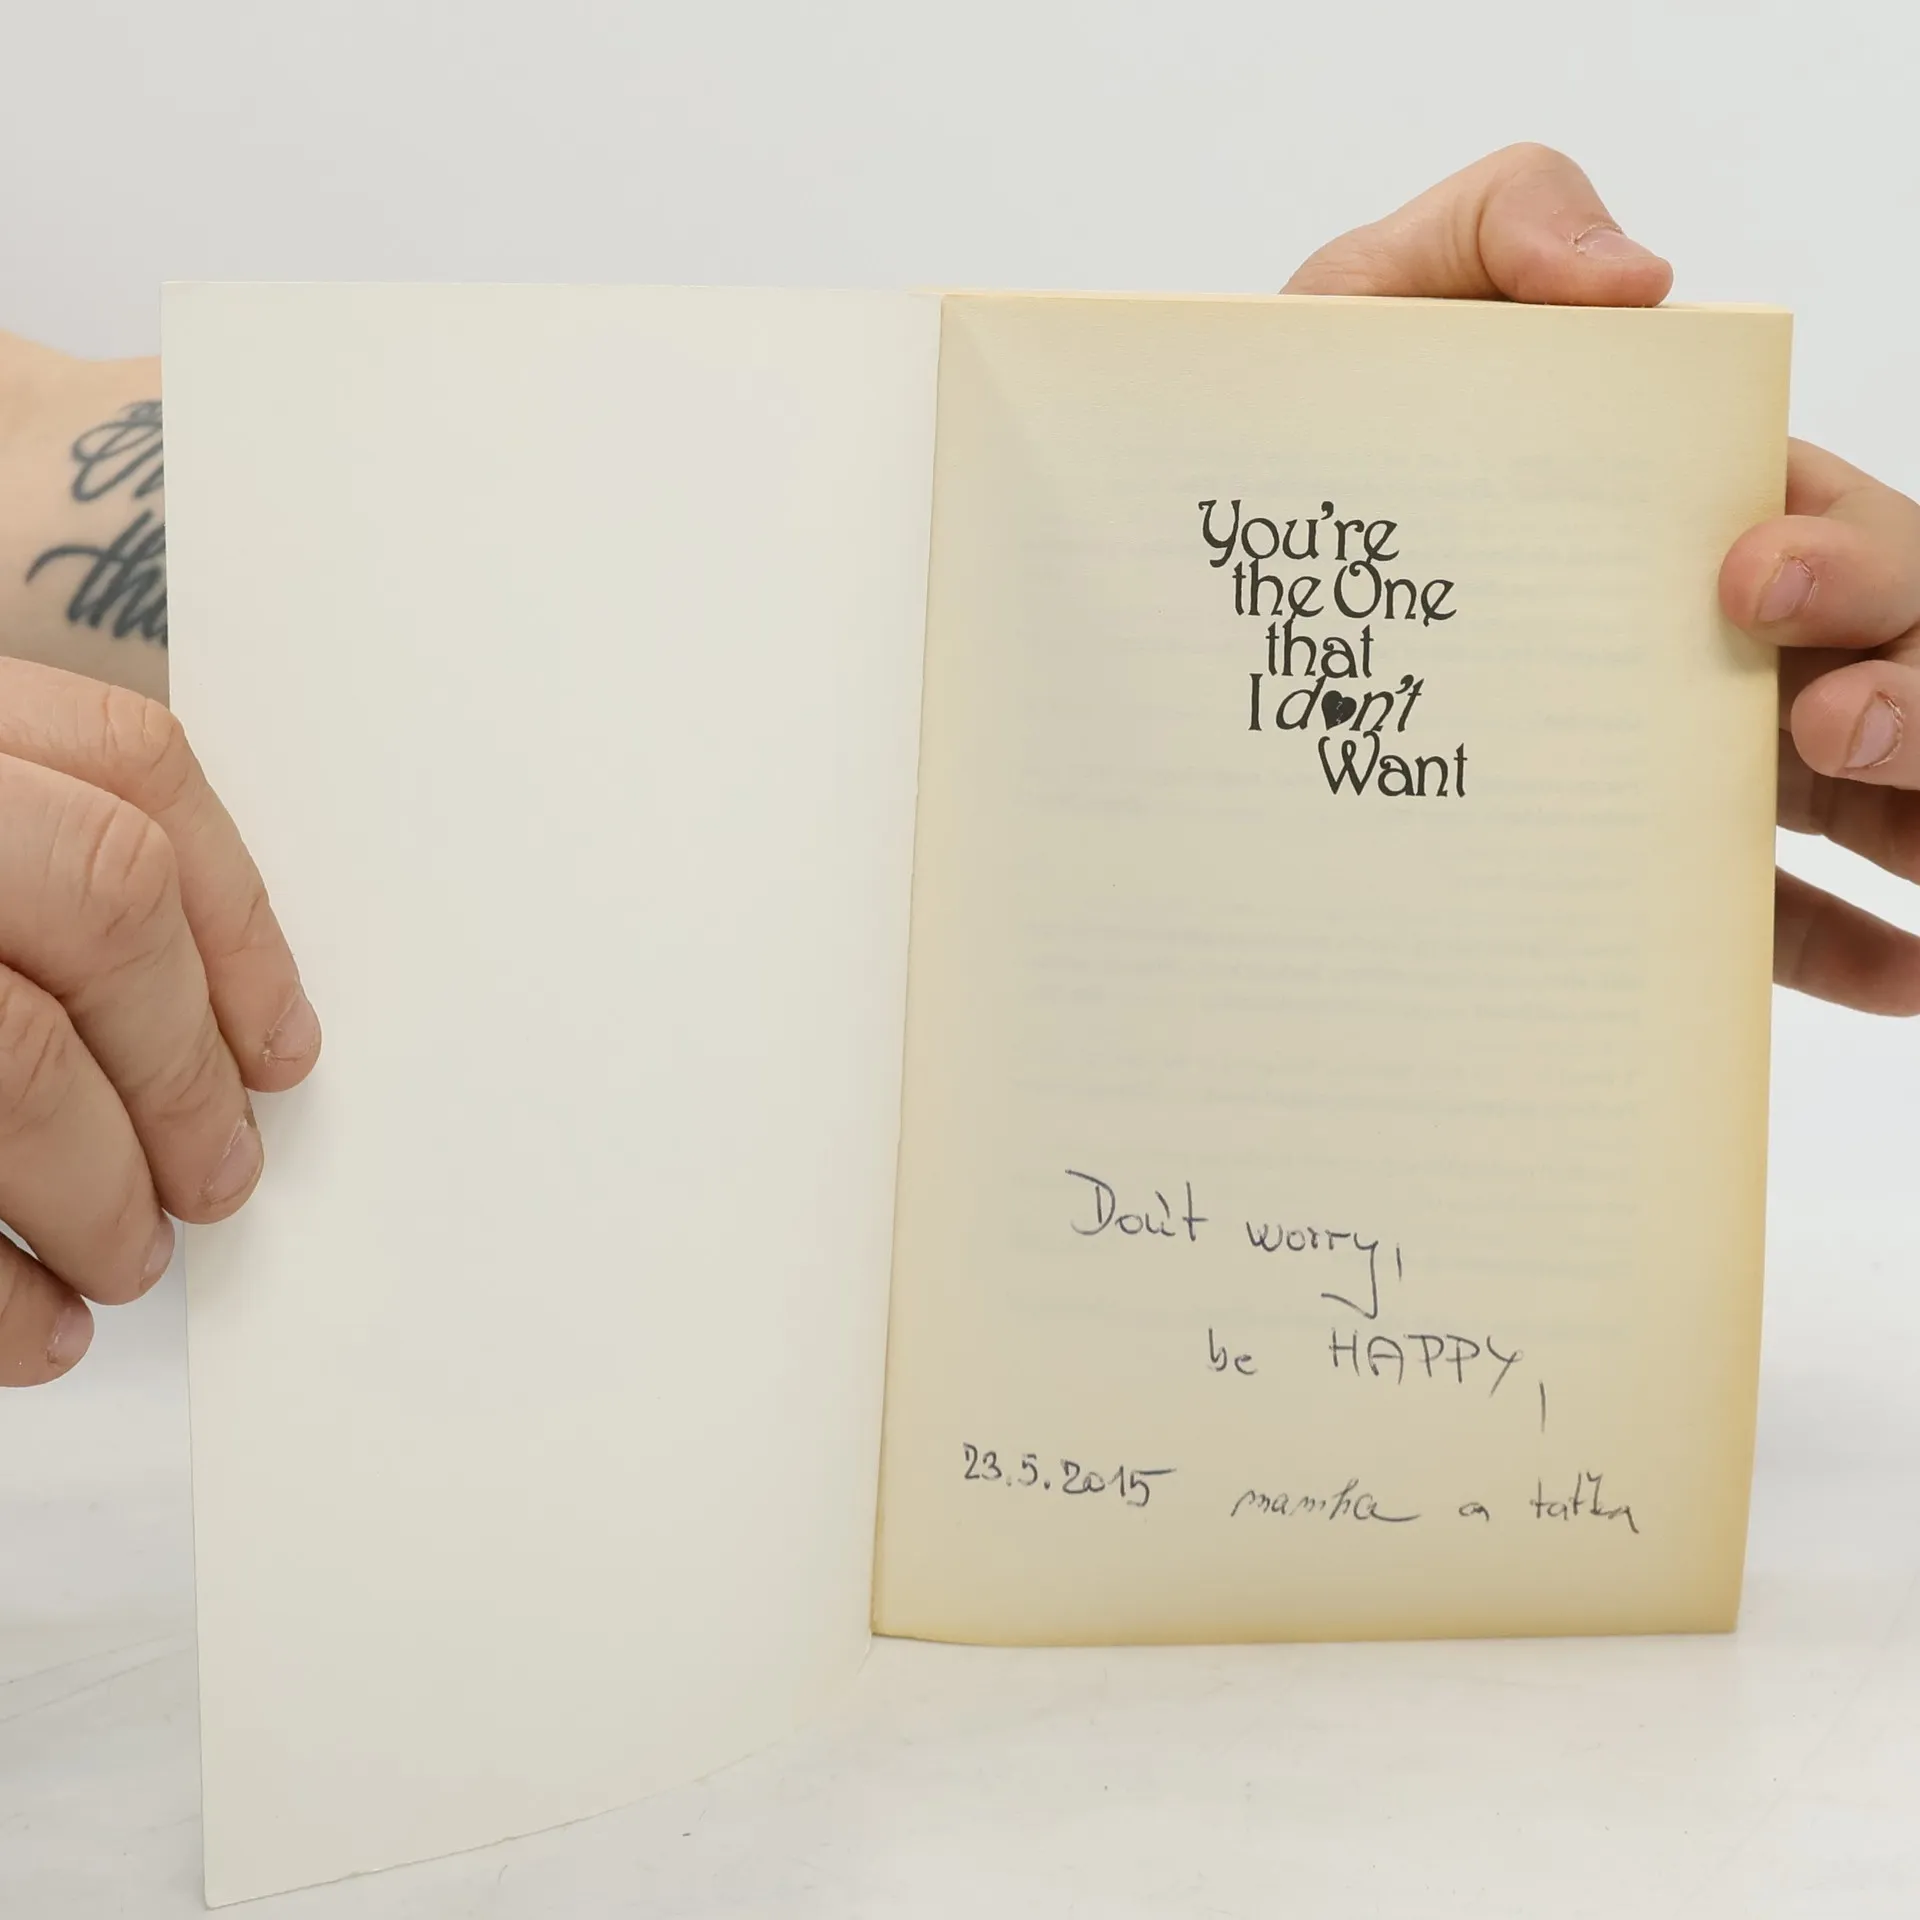 You're
the One
that
I don't
Want
Don't worry,
be HAPPY,
23.5.2015 mamka a taťka